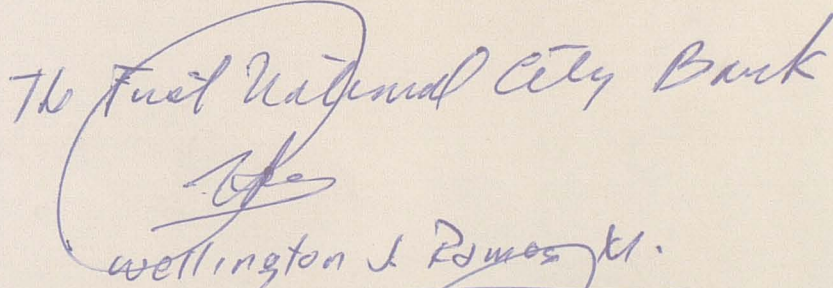 The First National City Bank
Wellington J. Ramos